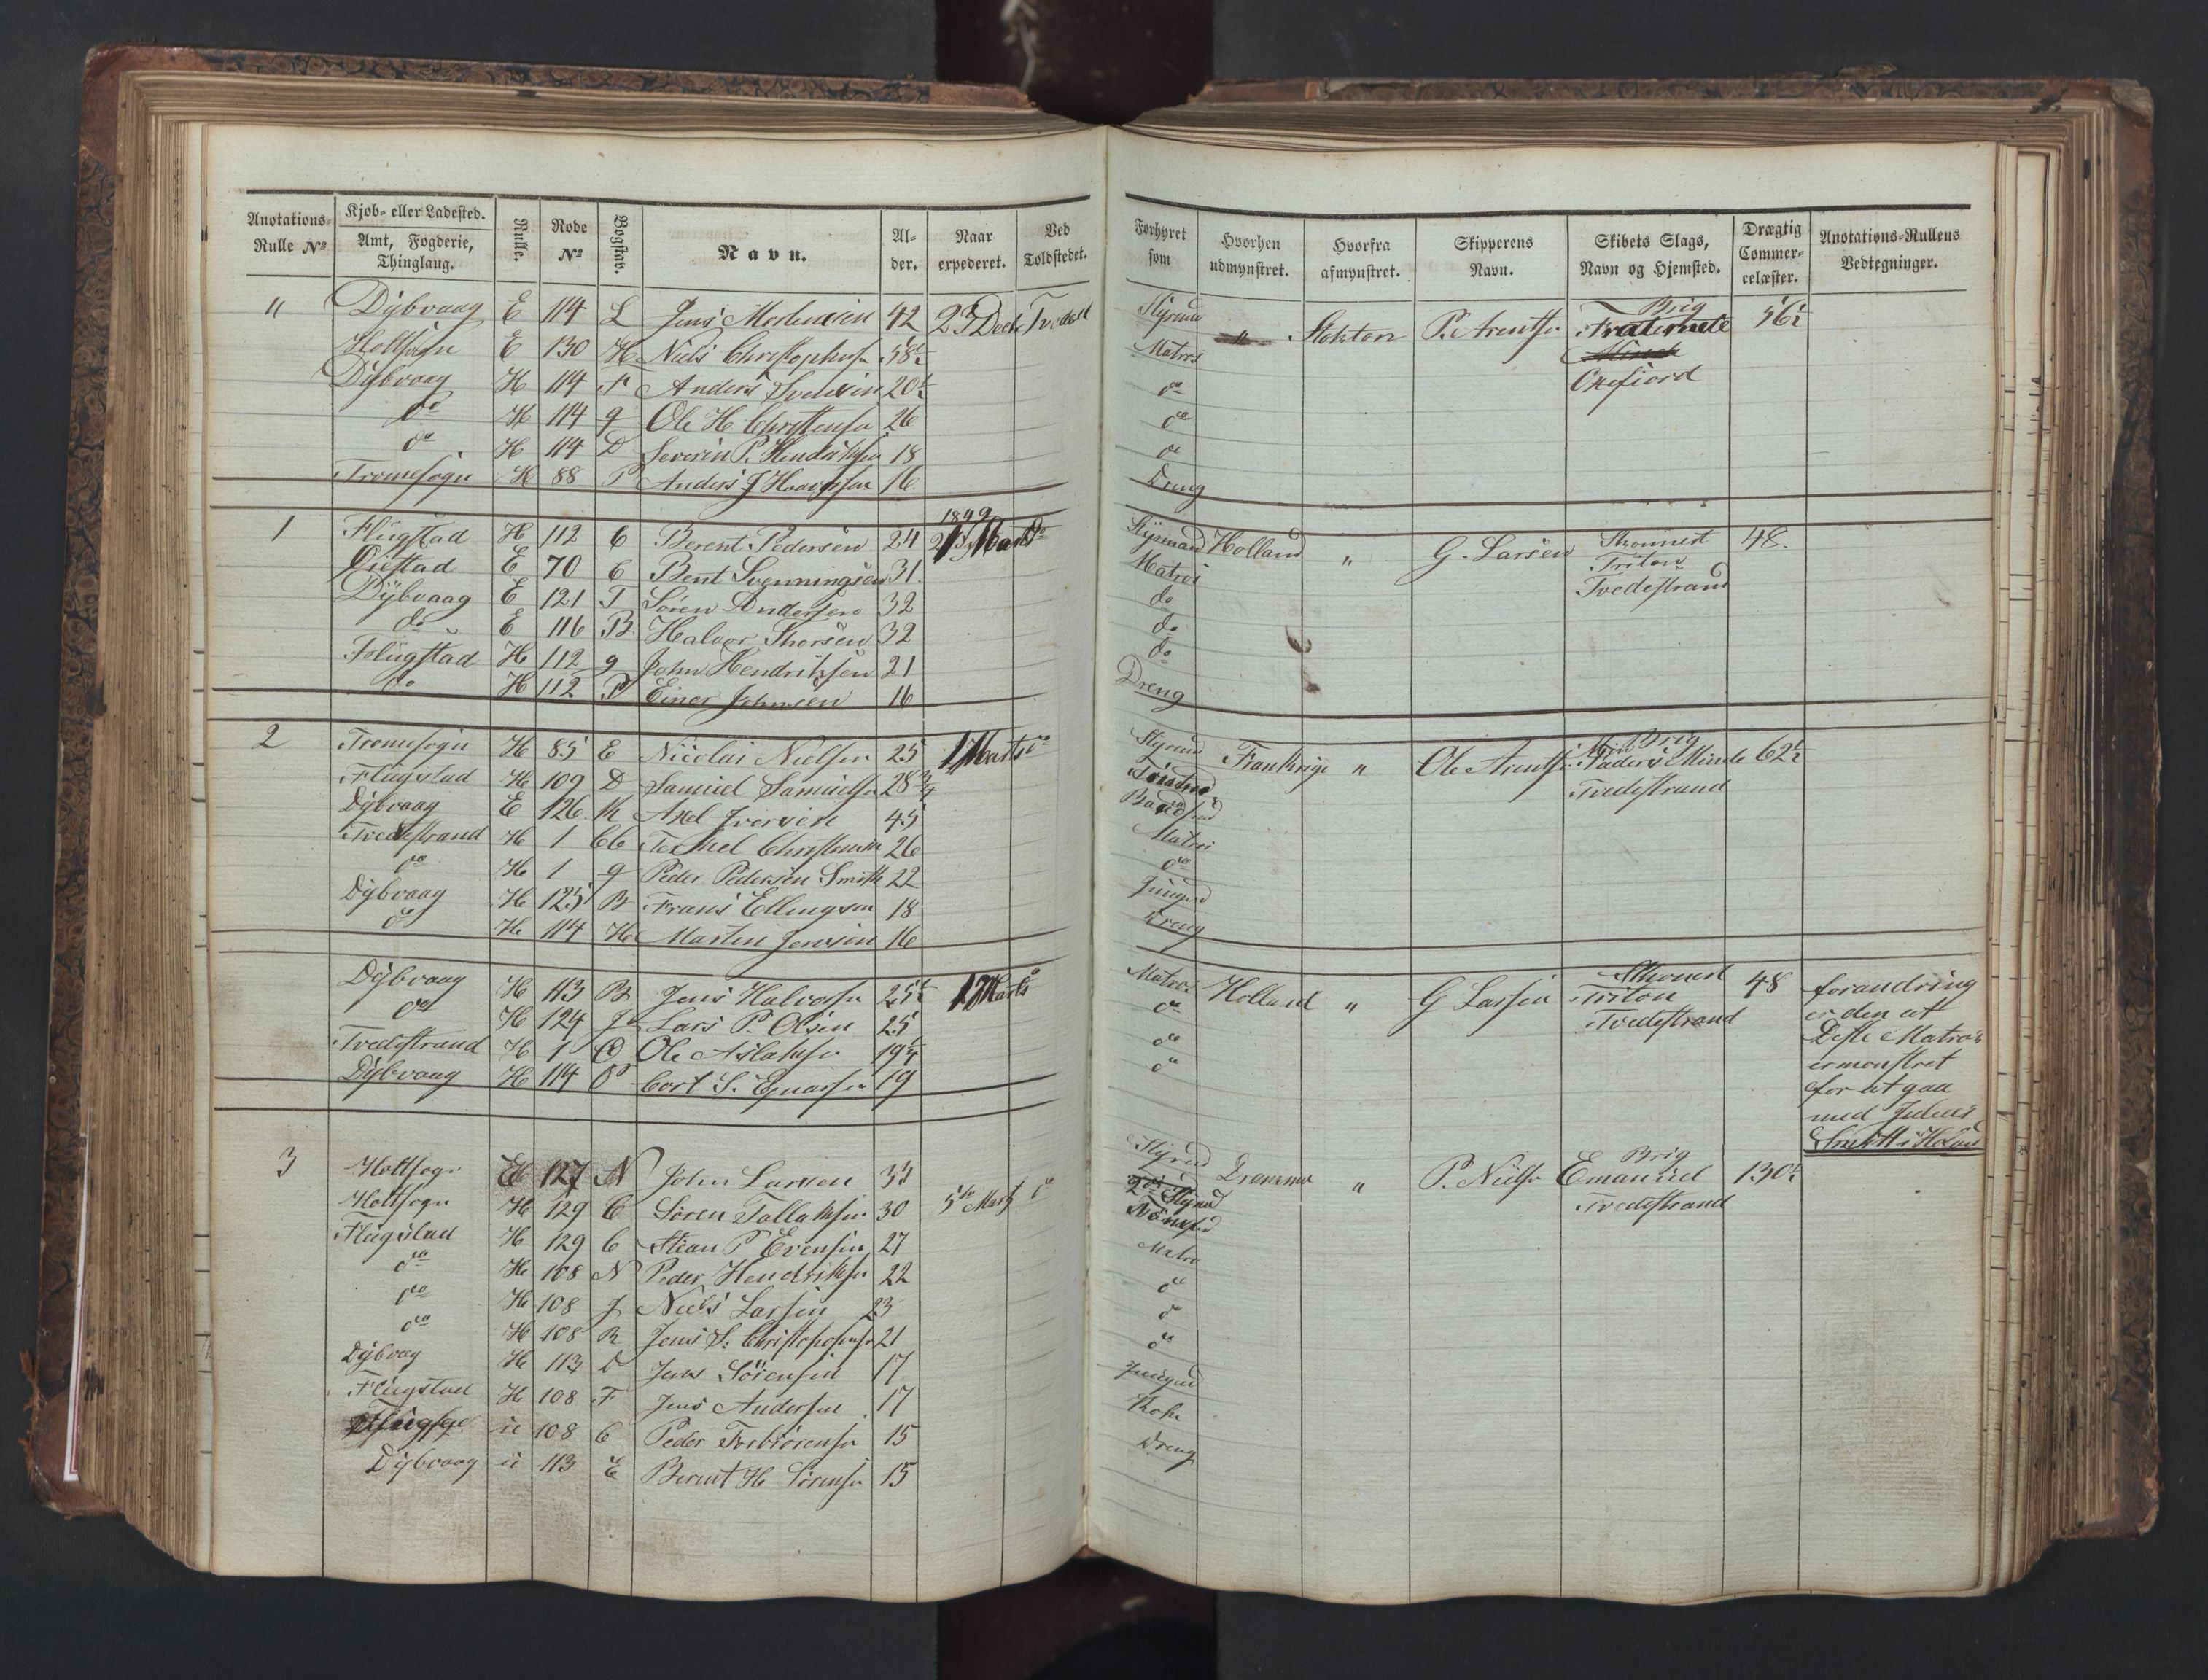 Anotations-Rulle No | Kjøb- eller Ladested. Amt, Fogderie, Thinglaug. | Rulle. | Rode No | Bogstav. | Navn. | Alder. | Naar expederet. | Ved Toldstedet. | Forhyret som | Hvorhen udmynstret. | Hvorfra afmynstret. | Skipperens Navn. | Skibets Slags, Navn og Hjemsted. | Drægtig Commercelæster. | Anotations-Rullens Vedtegninger.
" | Dybvaag | E | 114 | L | Jens Mortensen | 42 | 23 Decb | Tvedest | Styrmd | " | Stokton | P. Arentsn | Brig Fraternite | 56½
Holtsogn | E | 130 | H | Niels Christophersn | 58½ | Matros
Dybvaag | H | 114 | F | Anders Svensen | 20½ | do | Oxefiord
do | H | 114 | g | Ole H Christensn | 26 | do
do | H | 114 | D | Severin P. Hendriksn | 18 | do
Tromesogn | H | 88 | P | Anders J | 16 | Dreng
1 | Flugstad | H | 112 | C | Berent Pedersen | 24 | 1849 1 Marts | do | Styrmand | Holland | " | G. Larsen | Skonnert | 48.
Oustad | E | 70 | C | Bent Svenningsen | 31 | Matros | Triton
Dybvaag | E | 121 | T | Sören Andersen | 32 | do | Tvedestrand
do | E | 116 | B | Halvor Thorsen | 32 | do
Flugstad | H | 112 | g | John Hendriksen | 21 | do
do | H | 112 | P | Einer Johnsen | 16 | Dreng
2 | Tromesogn | H | 85 | E | Nicolai Nielsen | 25 | 1 Marts | do | Styrmd | Frankrige | " | Ole Arentsn | Brig Min Faders Minde | 62½
Flugstad | H | 109 | D | Samuel Samuelsn | 28¾ | Tömmermd | Tvedestrand
Dybvaag | E | 126 | K | Axel Iversen | 45 | Baadsmd
Tvedestrand | H | 1 | CC | Terkel Christensen | 26 | Matros
do | H | 1 | g | Peder Pedersen Smith | 22 | do
Dybvaag | H | 125 | B | Frans Ellingsen | 18 | Jungmd
do | H | 114 | H | Martin Jensen | 16 | Dreng
Dybvaag | H | 113 | B | Jens Halvorsn | 25½ | 17 Marts | do | Matros | Holland | " | G Larsen | Skonnert | 48 | forandring
do | H | 124 | J | Lars P. Olsen | 25 | do | Triton | er den at
Tvedestrand | H | 1 | O | Ole Aslaksn | 19¾ | do | Tvedestrand | Disse Matros
Dybvaag | H | 114 | O | Cort S. | 19 | do | ermönstret
for at gaa
med Julius
Smith i Holand
3 | Holtsogn | E | 127 | N | John Larsen | 33 | Styrmd | Drammen | " | P. Nielsn | Brig Emanuel | 130½
Holtsogn | H | 129 | C | Sören Tallaksen | 30 | 5te Marts | do | 2den Styrmd | Tvedestrand
Flugstad | H | 129 | C | Stian P Evensen | 27 | Tömmermd
do | H | 108 | N | Peder Hendriksn | 22 | Matros
do | H | 108 | J | Niels Larsen | 23 | do
do | H | 108 | R | Jens S. Christophersn | 21 | do
Dybvag | H | 113 | D | Jens Sörensen | 17 | do
Flugstad | H | 108 | F | Jens Andersen | 17 | Jungmd
108 | C | Peder Torbiörensn | 15 | Kok
Dybvaag | 113 | E | Berent H Sörensn | 15 | Dreng